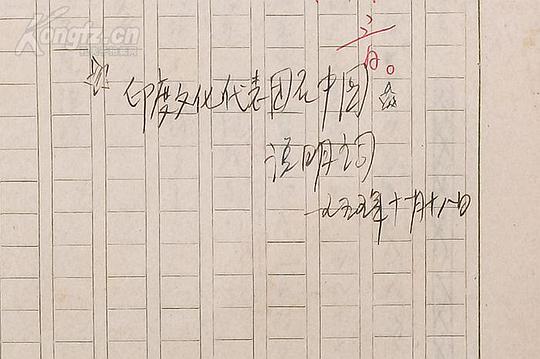 Kongfz.cn
印度文化代表团在中国
说明词
一九五五年十一月十八日